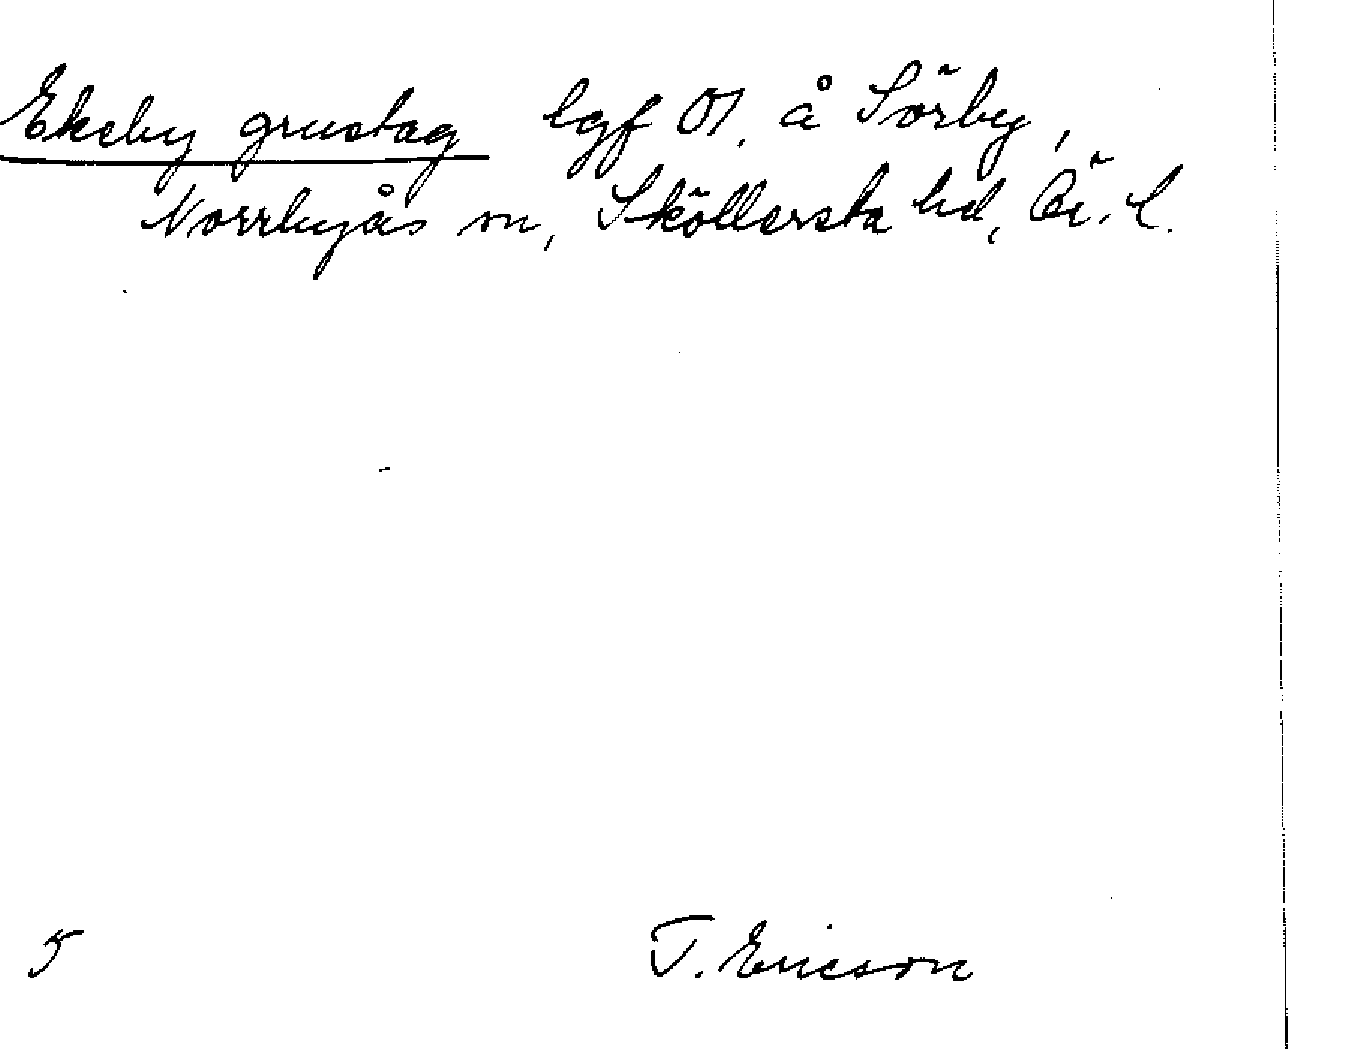 Ekeby grustag lgf 01. å Sörby,
Norrbyås sn, Sköllersta hd, Ör. l.
5 T. Ericson